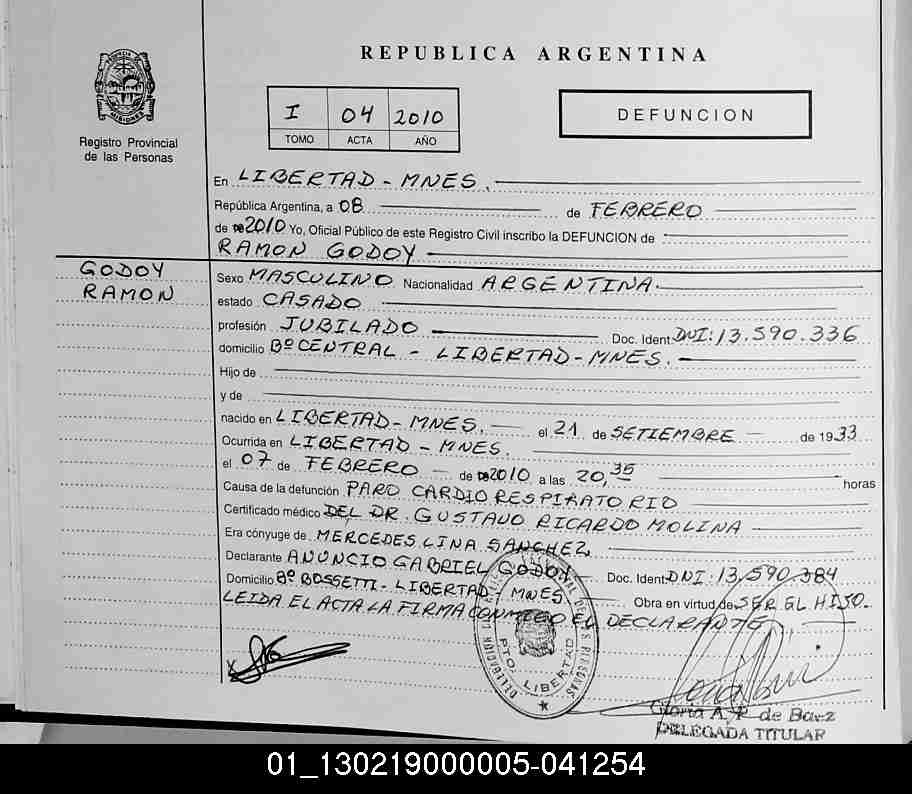 REPUBLICA ARGENTINA
PROVINCIA DE MISIONES
Registro Provincial
de las Personas
I 04 2010
TOMO ACTA AÑO
DEFUNCION
En LIBERTAD - MNES.
República Argentina, a 08 de FEBRERO
de 2010 Yo, Oficial Público de este Registro Civil inscribo la DEFUNCION de
RAMON GODOY
GODOY
RAMON
Sexo MASCULINO Nacionalidad ARGENTINA.
estado CASADO
profesión JUBILADO Doc. Ident DNI: 13.590.336
domicilio Bº CENTRAL - LIBERTAD - MNES.
Hijo de
y de
nacido en LIBERTAD - MNES. el 21 de SETIEMBRE de 1933
Ocurrida en LIBERTAD - MNES.
el 07 de FEBRERO de 2010 a las 20,35 horas
Causa de la defunción PARO CARDIO RESPIRATORIO
Certificado médico DEL DR. GUSTAVO RICARDO MOLINA
Era cónyuge de MERCEDES LINA SANCHEZ
Declarante ANUNCIO GABRIEL GODOY Doc. Ident DNI: 13,590 384
Domicilio Bº BOSSETTI - LIBERTAD - MNES Obra en virtud de SER EL HIJO.
LEIDA EL ACTA LA FIRMA CONMIGO EL DECLARANTE
PTO. LIBERTAD
Gloria A. de Baez
DELEGADA TITULAR
01_130219000005-041254